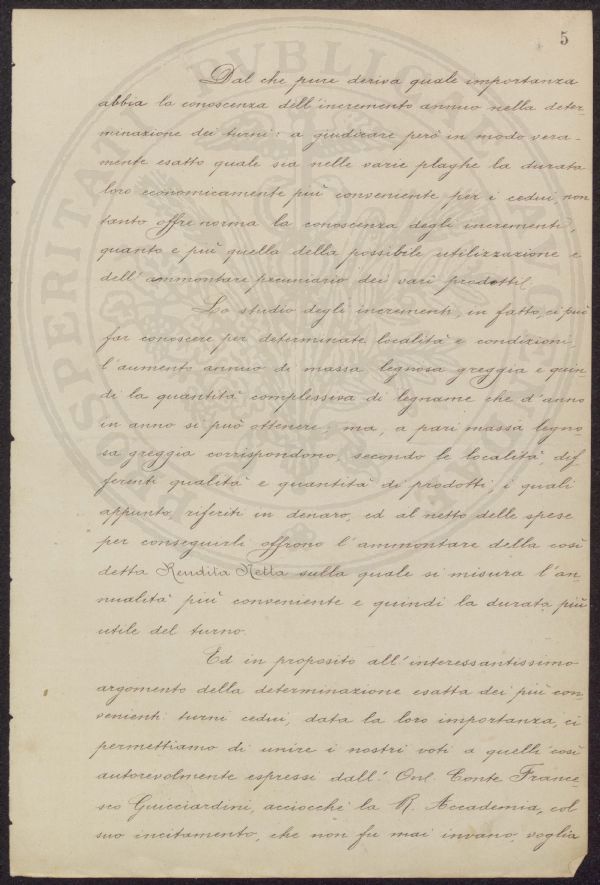 5
Dal che pure deriva quale importanza
abbia la conoscenza dell'incremento annuo nella deter-
minazione dei turni: a giudicare però in modo vera-
mente esatto quale sia nelle varie plaghe la durata
loro economicamente più conveniente per i cedui, non
tanto offre norma la conoscenza degli incrementi,
quanto e più quella della possibile utilizzazione e
dell'ammontare pecuniario dei vari prodotti.
Lo studio degli incrementi, in fatto, ci può
far conoscere per determinate località e condizioni
l'aumento annuo di massa legnosa greggia e quin-
di la quantità complessiva di legname che d'anno
in anno si può ottenere; ma, a pari massa legno-
sa greggia corrispondono, secondo le località, dif-
ferenti qualità e quantità di prodotti, i quali
appunto, riferiti in denaro, ed al netto delle spese
per conseguirli offrono l'ammontare della così
detta Rendita Netta sulla quale si misura l'an-
nualità più conveniente e quindi la durata più
utile del turno.
Ed in proposito all'interessantissimo
argomento della determinazione esatta dei più con-
venienti turni cedui, data la loro importanza, ci
permettiamo di unire i nostri voti a quelli così
autorevolmente espressi dall'. Onl. Conte France-
sco Guicciardini, acciocchè la R. Accademia, col
suo incitamento, che non fu mai invano, voglia
PROSPERITATI PVBLICAE AVGENDAE